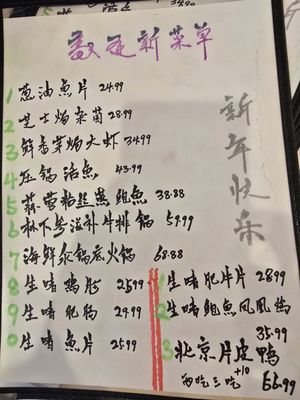 新菜单
新年快乐
1 葱油鱼片 24.99
2 芝士焗杂菌 28.99
3 鲜香芋焗大虾 34.99
4 压锅活鱼 43.99
5 蒜蓉粉丝蒸鲍鱼 38.88
6 林下参滋补牛排锅 59.99
7 海鲜汆锅底火锅 68.88
8 生啫鸡肪 25.99
9 生啫肥肠 29.99
0 生啫鱼片 25.99
1 生啫肥牛片 28.99
2 生啫鲍鱼凤凰鸡
35.99
3 北京片皮鸭
两吃三吃+10 66.99